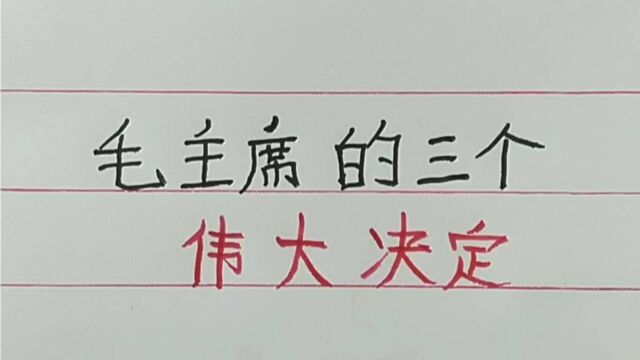 毛主席的三个
伟大决定